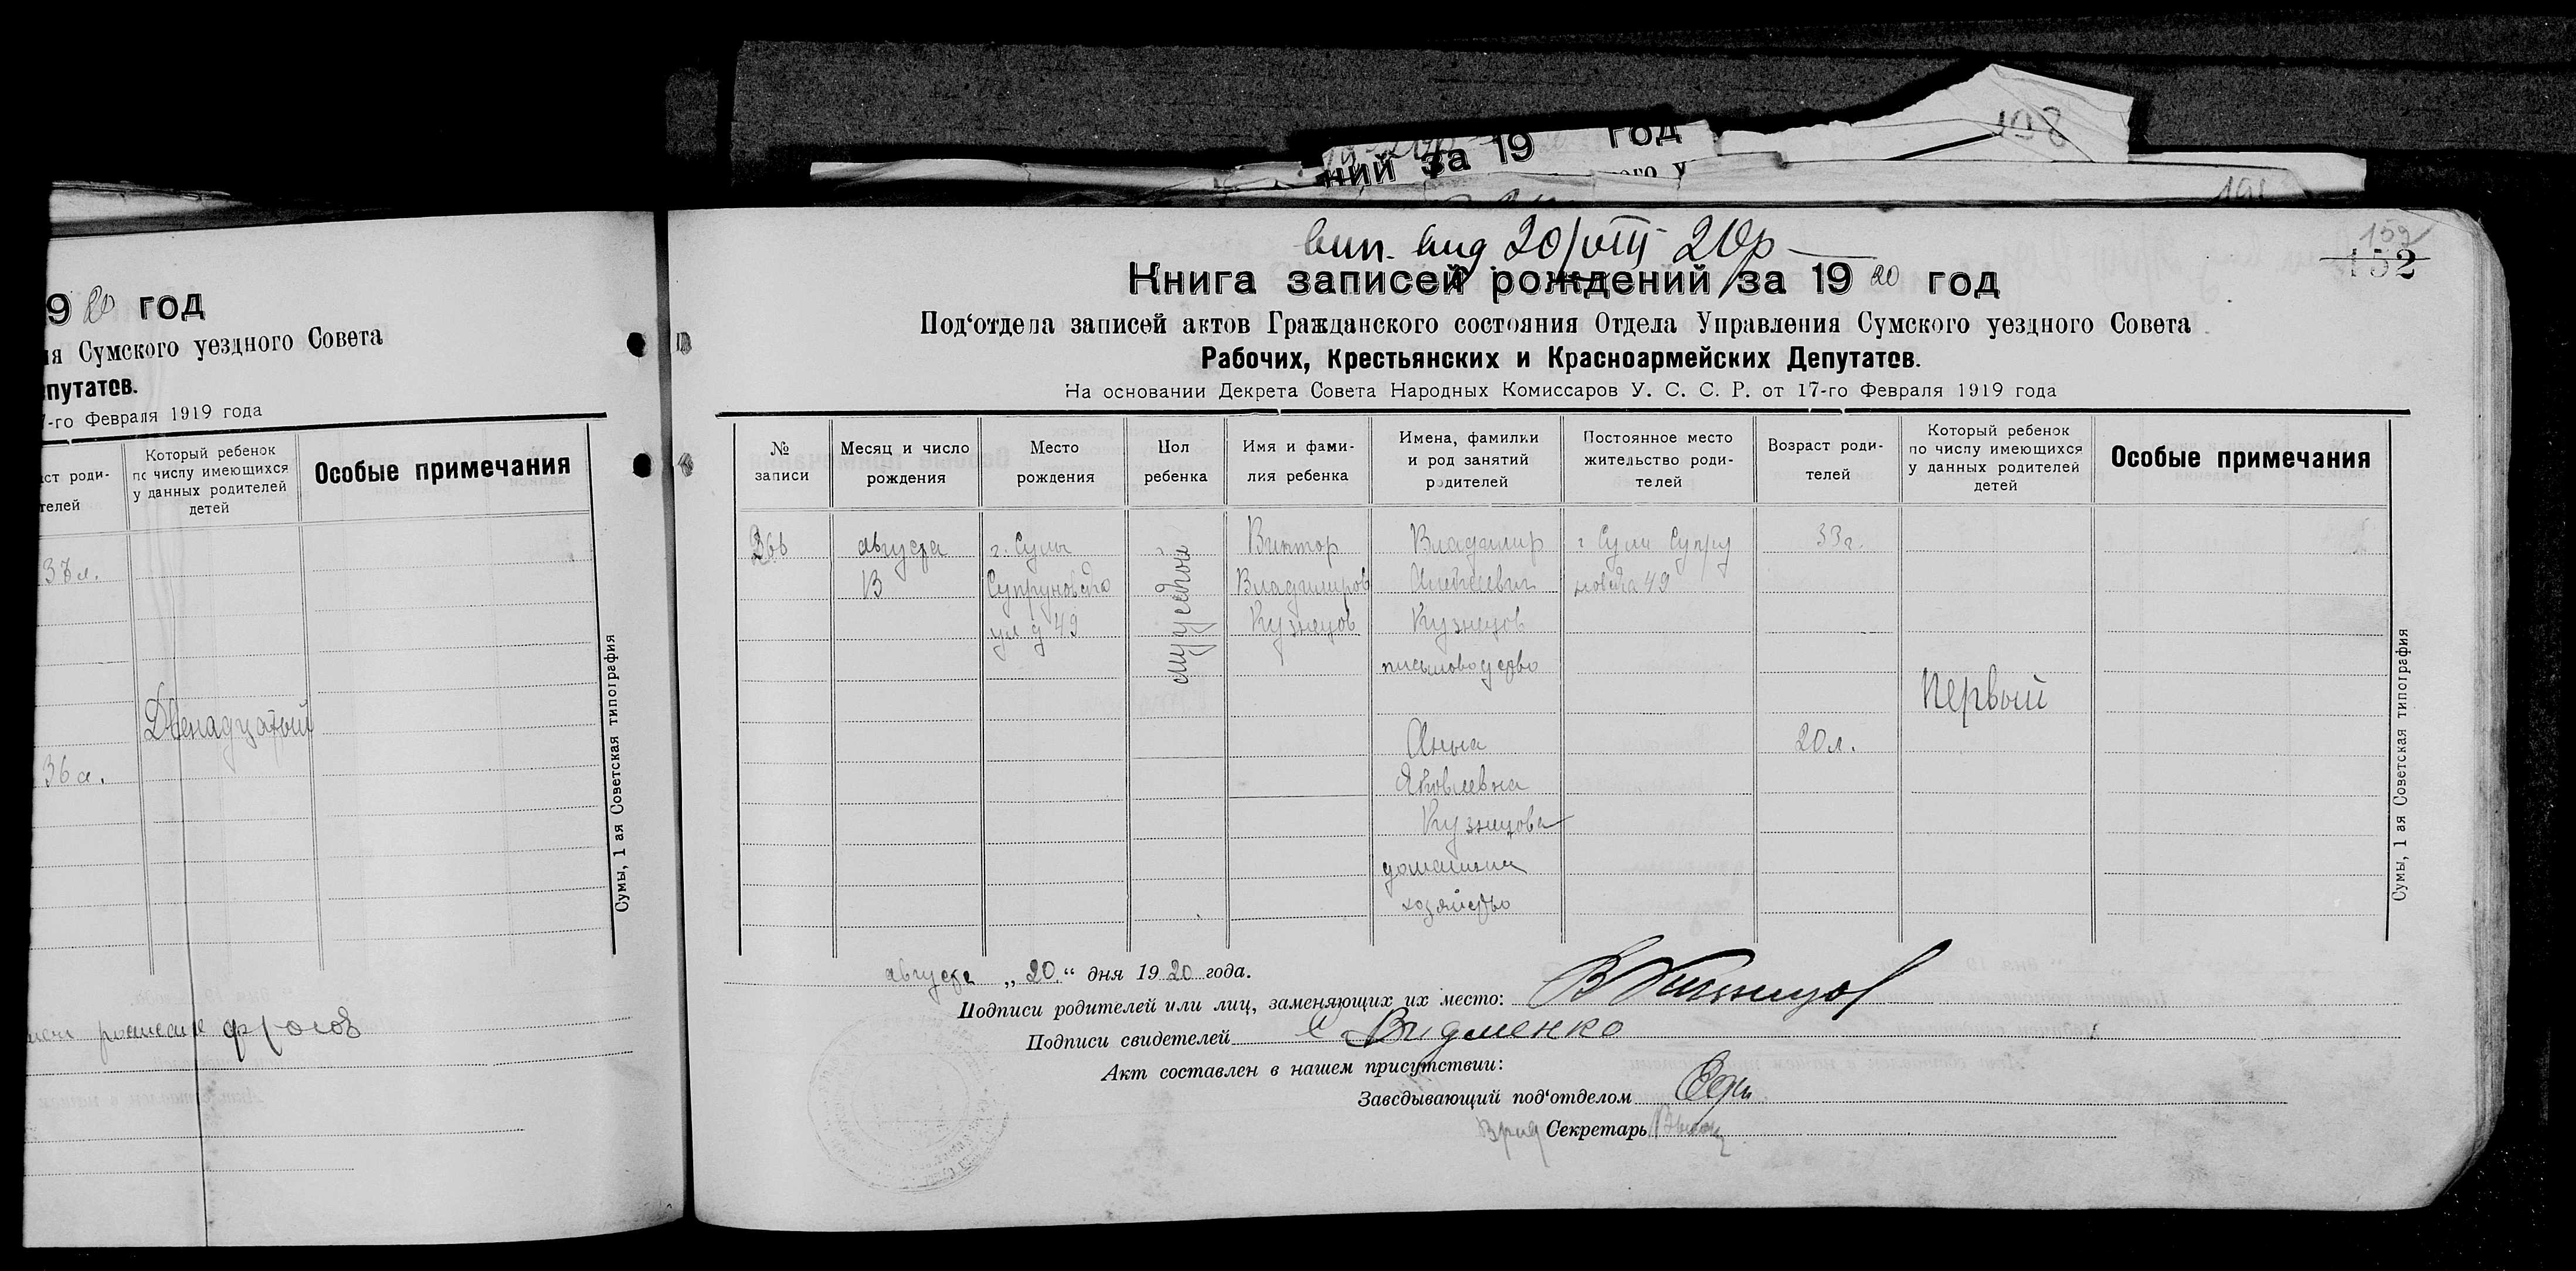 ний за 19 год
ого у
198
9 20 год
ия Сумского уездного Совета
епутатов.
7-го Февраля 1919 года
ст роди-
телей
Который ребенок
по числу имеющихся
у данных родителей
детей
Особые примечания
37 л.
Двенадцатый
36 л.
Сумы, 1 ая Советская типография
20/VIII 20р
159
152
Книга записей рождений за 19 20 год
Под‘отдела записей актов Гражданского состояния Отдела Управления Сумского уездного Совета
Рабочих, Крестьянских и Красноармейских Депутатов.
На основании Декрета Совета Народных Комиссаров У. С. С. Р. от 17-го Февраля 1919 года
№
записи
Месяц и число
рождения
Место
рождения
Пол
ребенка
Имя и фами-
лия ребенка
Имена, фамилии
и род занятий
родителей
Постоянное место
жительство роди-
телей
Возраст роди-
телей
Который ребенок
по числу имеющихся
у данных родителей
детей
Особые примечания
августа
г. Сумы
Супруновска
ул д 49
мужской
Виктор
Владимиров
Кузнецов
Владимир
Алексеевич
Кузнецов
письмоводство
г Сумы Супру
новска 49
33 г.
Первый
Анна
Яковлевна
Кузнецова
домашнее
хозяйство
20 л.
Сумы, 1 ая Советская типография
августа „20.“ дня 19 20 года.
Подписи родителей или лиц, заменяющих их место: В Кузнецов
Подписи свидетелей Видменко
Акт составлен в нашем присутствии:
Заведывающий под‘отделом
Врид Секретарь